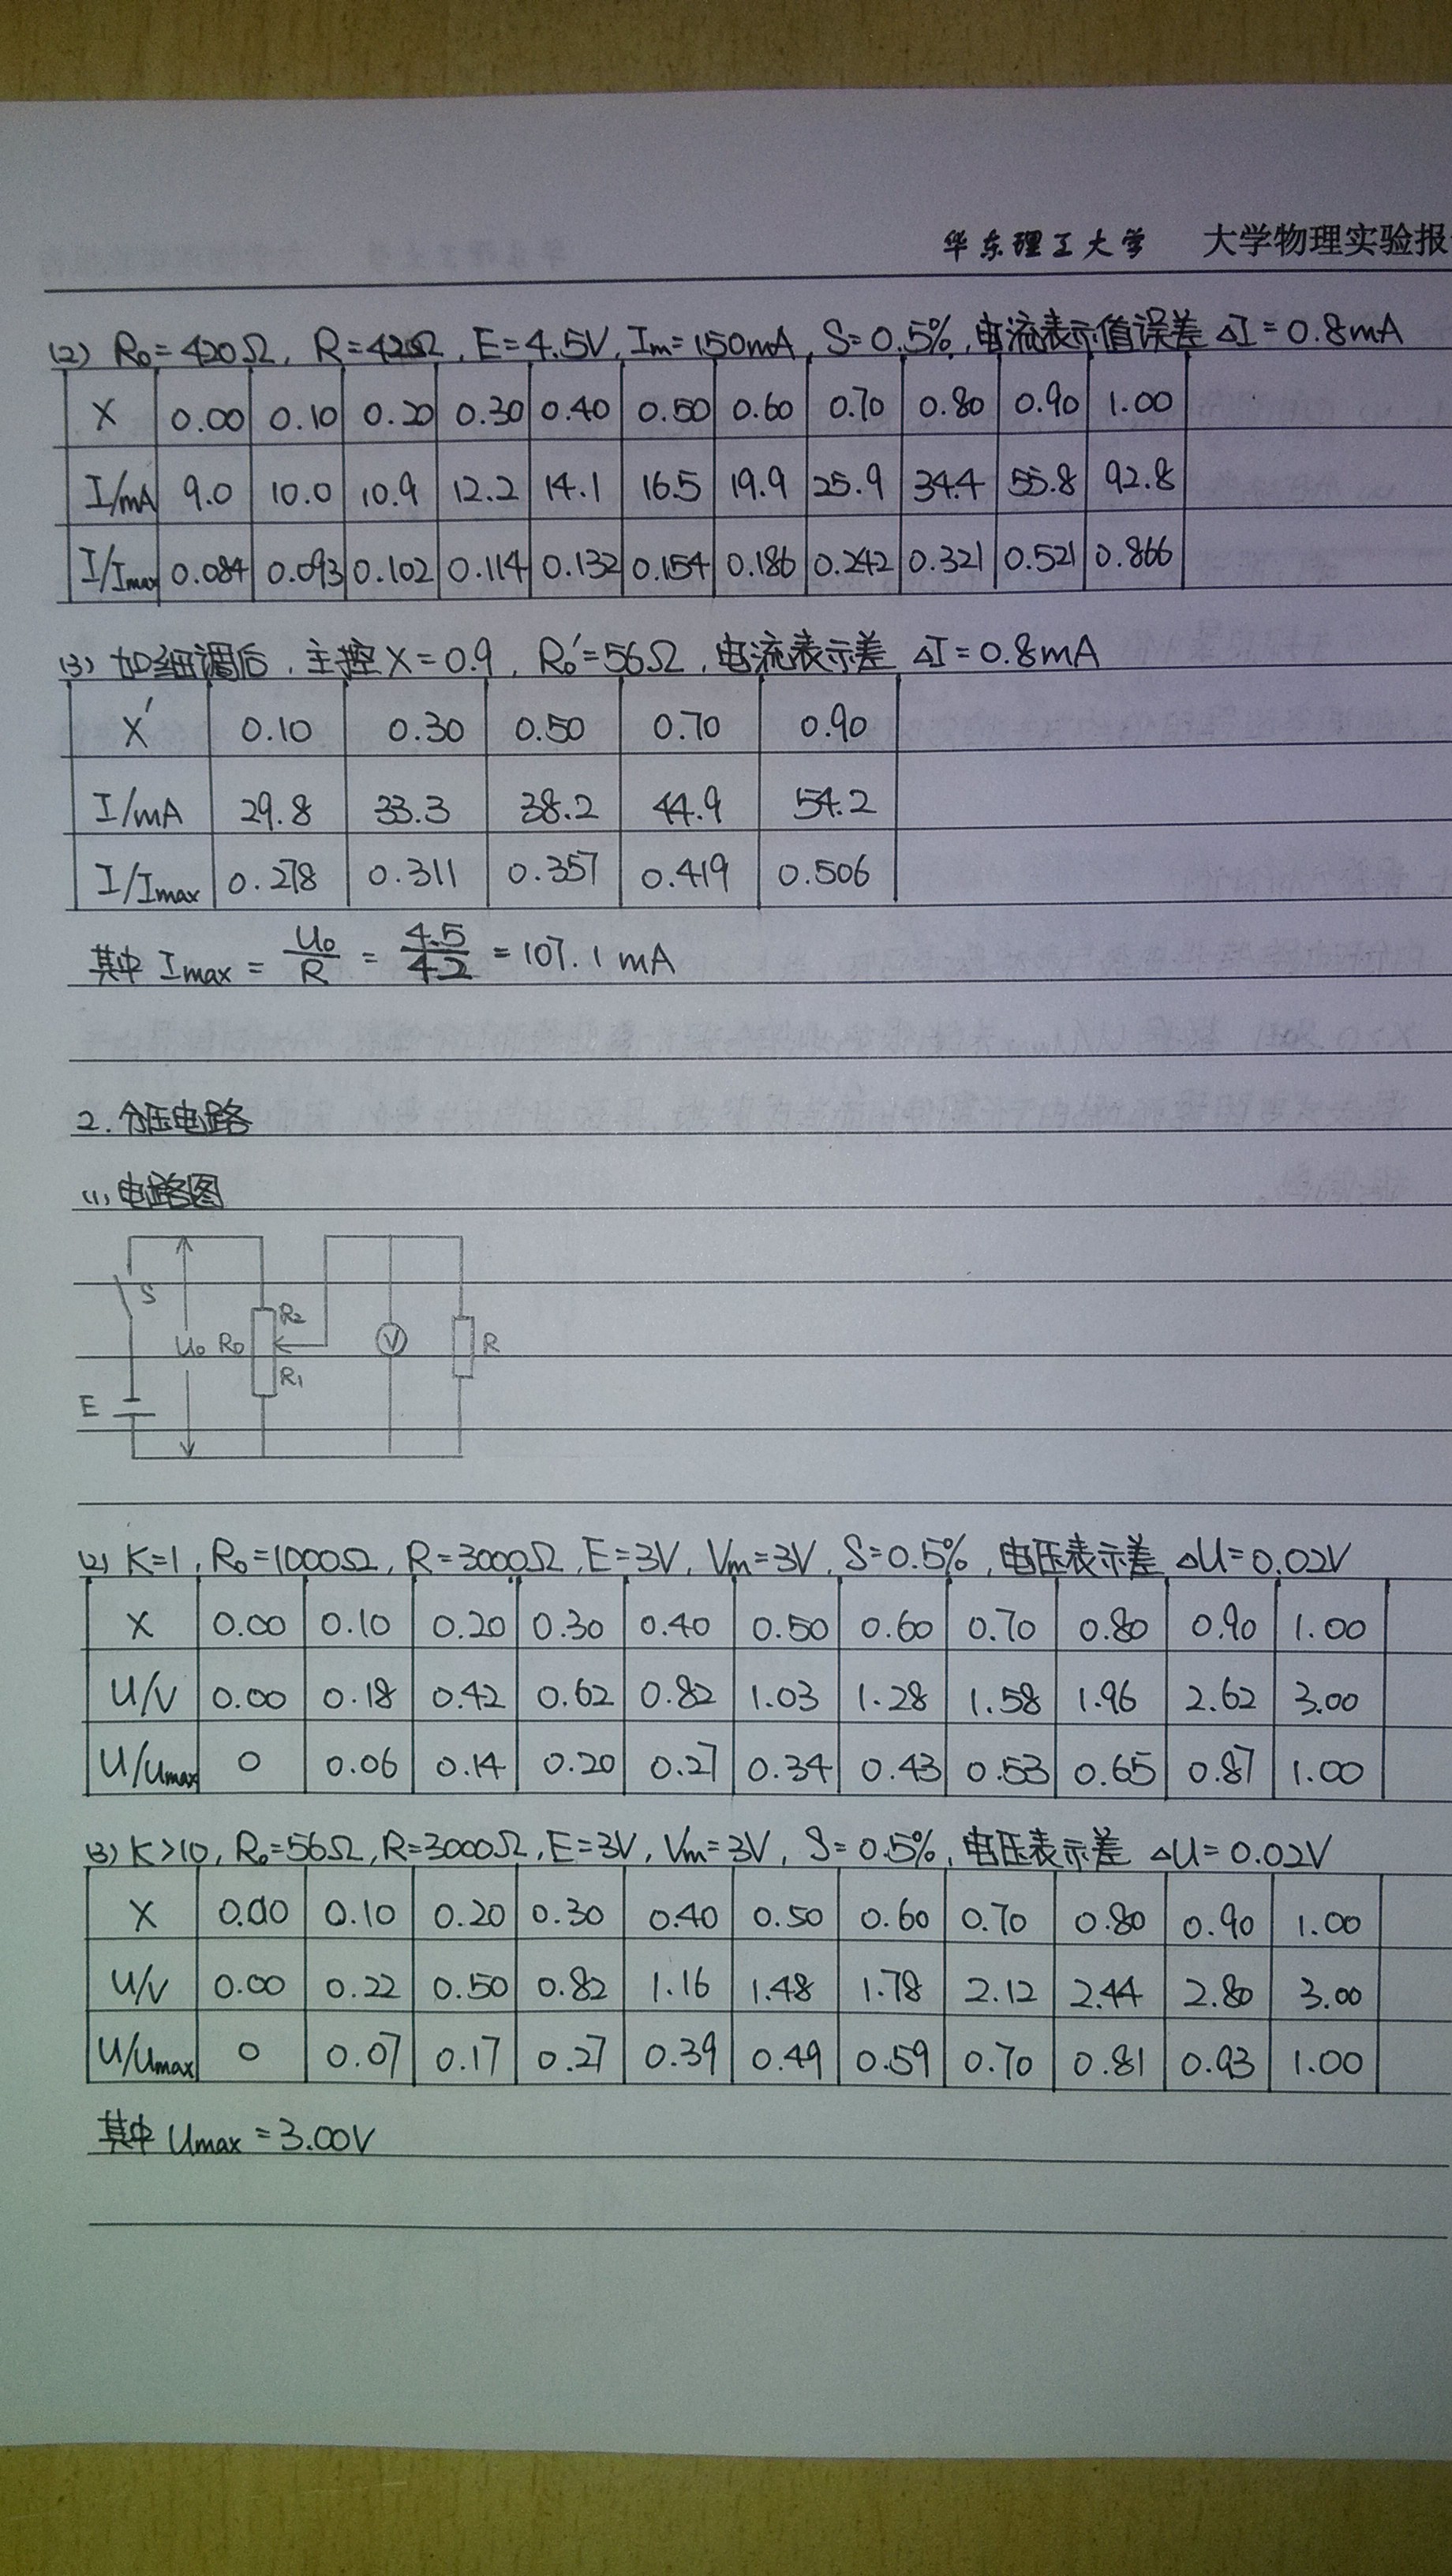 华东理工大学 大学物理实验报
(2) R₀=420Ω, R=42Ω, E=4.5V, Im=150mA, S=0.5%, 电流表示值误差 ΔI=0.8mA
X 0.00 0.10 0.20 0.30 0.40 0.50 0.60 0.70 0.80 0.90 1.00
I/mA 9.0 10.0 10.9 12.2 14.1 16.5 19.9 25.9 34.4 55.8 92.8
I/Imax 0.084 0.093 0.102 0.114 0.132 0.154 0.186 0.242 0.321 0.521 0.866
(3) 加细调后, 主控X=0.9, R₀′=56Ω, 电流表示差 ΔI=0.8mA
X′ 0.10 0.30 0.50 0.70 0.90
I/mA 29.8 33.3 38.2 44.9 54.2
I/Imax 0.278 0.311 0.357 0.419 0.506
其中 Imax = U₀/R = 4.5/42 = 107.1mA
2. 分压电路
(1) 电路图
S
R₂
U₀ R₀ V R
R₁
E
(2) K=1, R₀=1000Ω, R=3000Ω, E=3V, Vm=3V, S=0.5%, 电压表示差 ΔU=0.02V
X 0.00 0.10 0.20 0.30 0.40 0.50 0.60 0.70 0.80 0.90 1.00
U/V 0.00 0.18 0.42 0.62 0.82 1.03 1.28 1.58 1.96 2.62 3.00
U/Umax 0 0.06 0.14 0.20 0.27 0.34 0.43 0.53 0.65 0.87 1.00
(3) K>10, R₀=56Ω, R=3000Ω, E=3V, Vm=3V, S=0.5%, 电压表示差 ΔU=0.02V
X 0.00 0.10 0.20 0.30 0.40 0.50 0.60 0.70 0.80 0.90 1.00
U/V 0.00 0.22 0.50 0.82 1.16 1.48 1.78 2.12 2.44 2.80 3.00
U/Umax 0 0.07 0.17 0.27 0.39 0.49 0.59 0.70 0.81 0.93 1.00
其中 Umax=3.00V